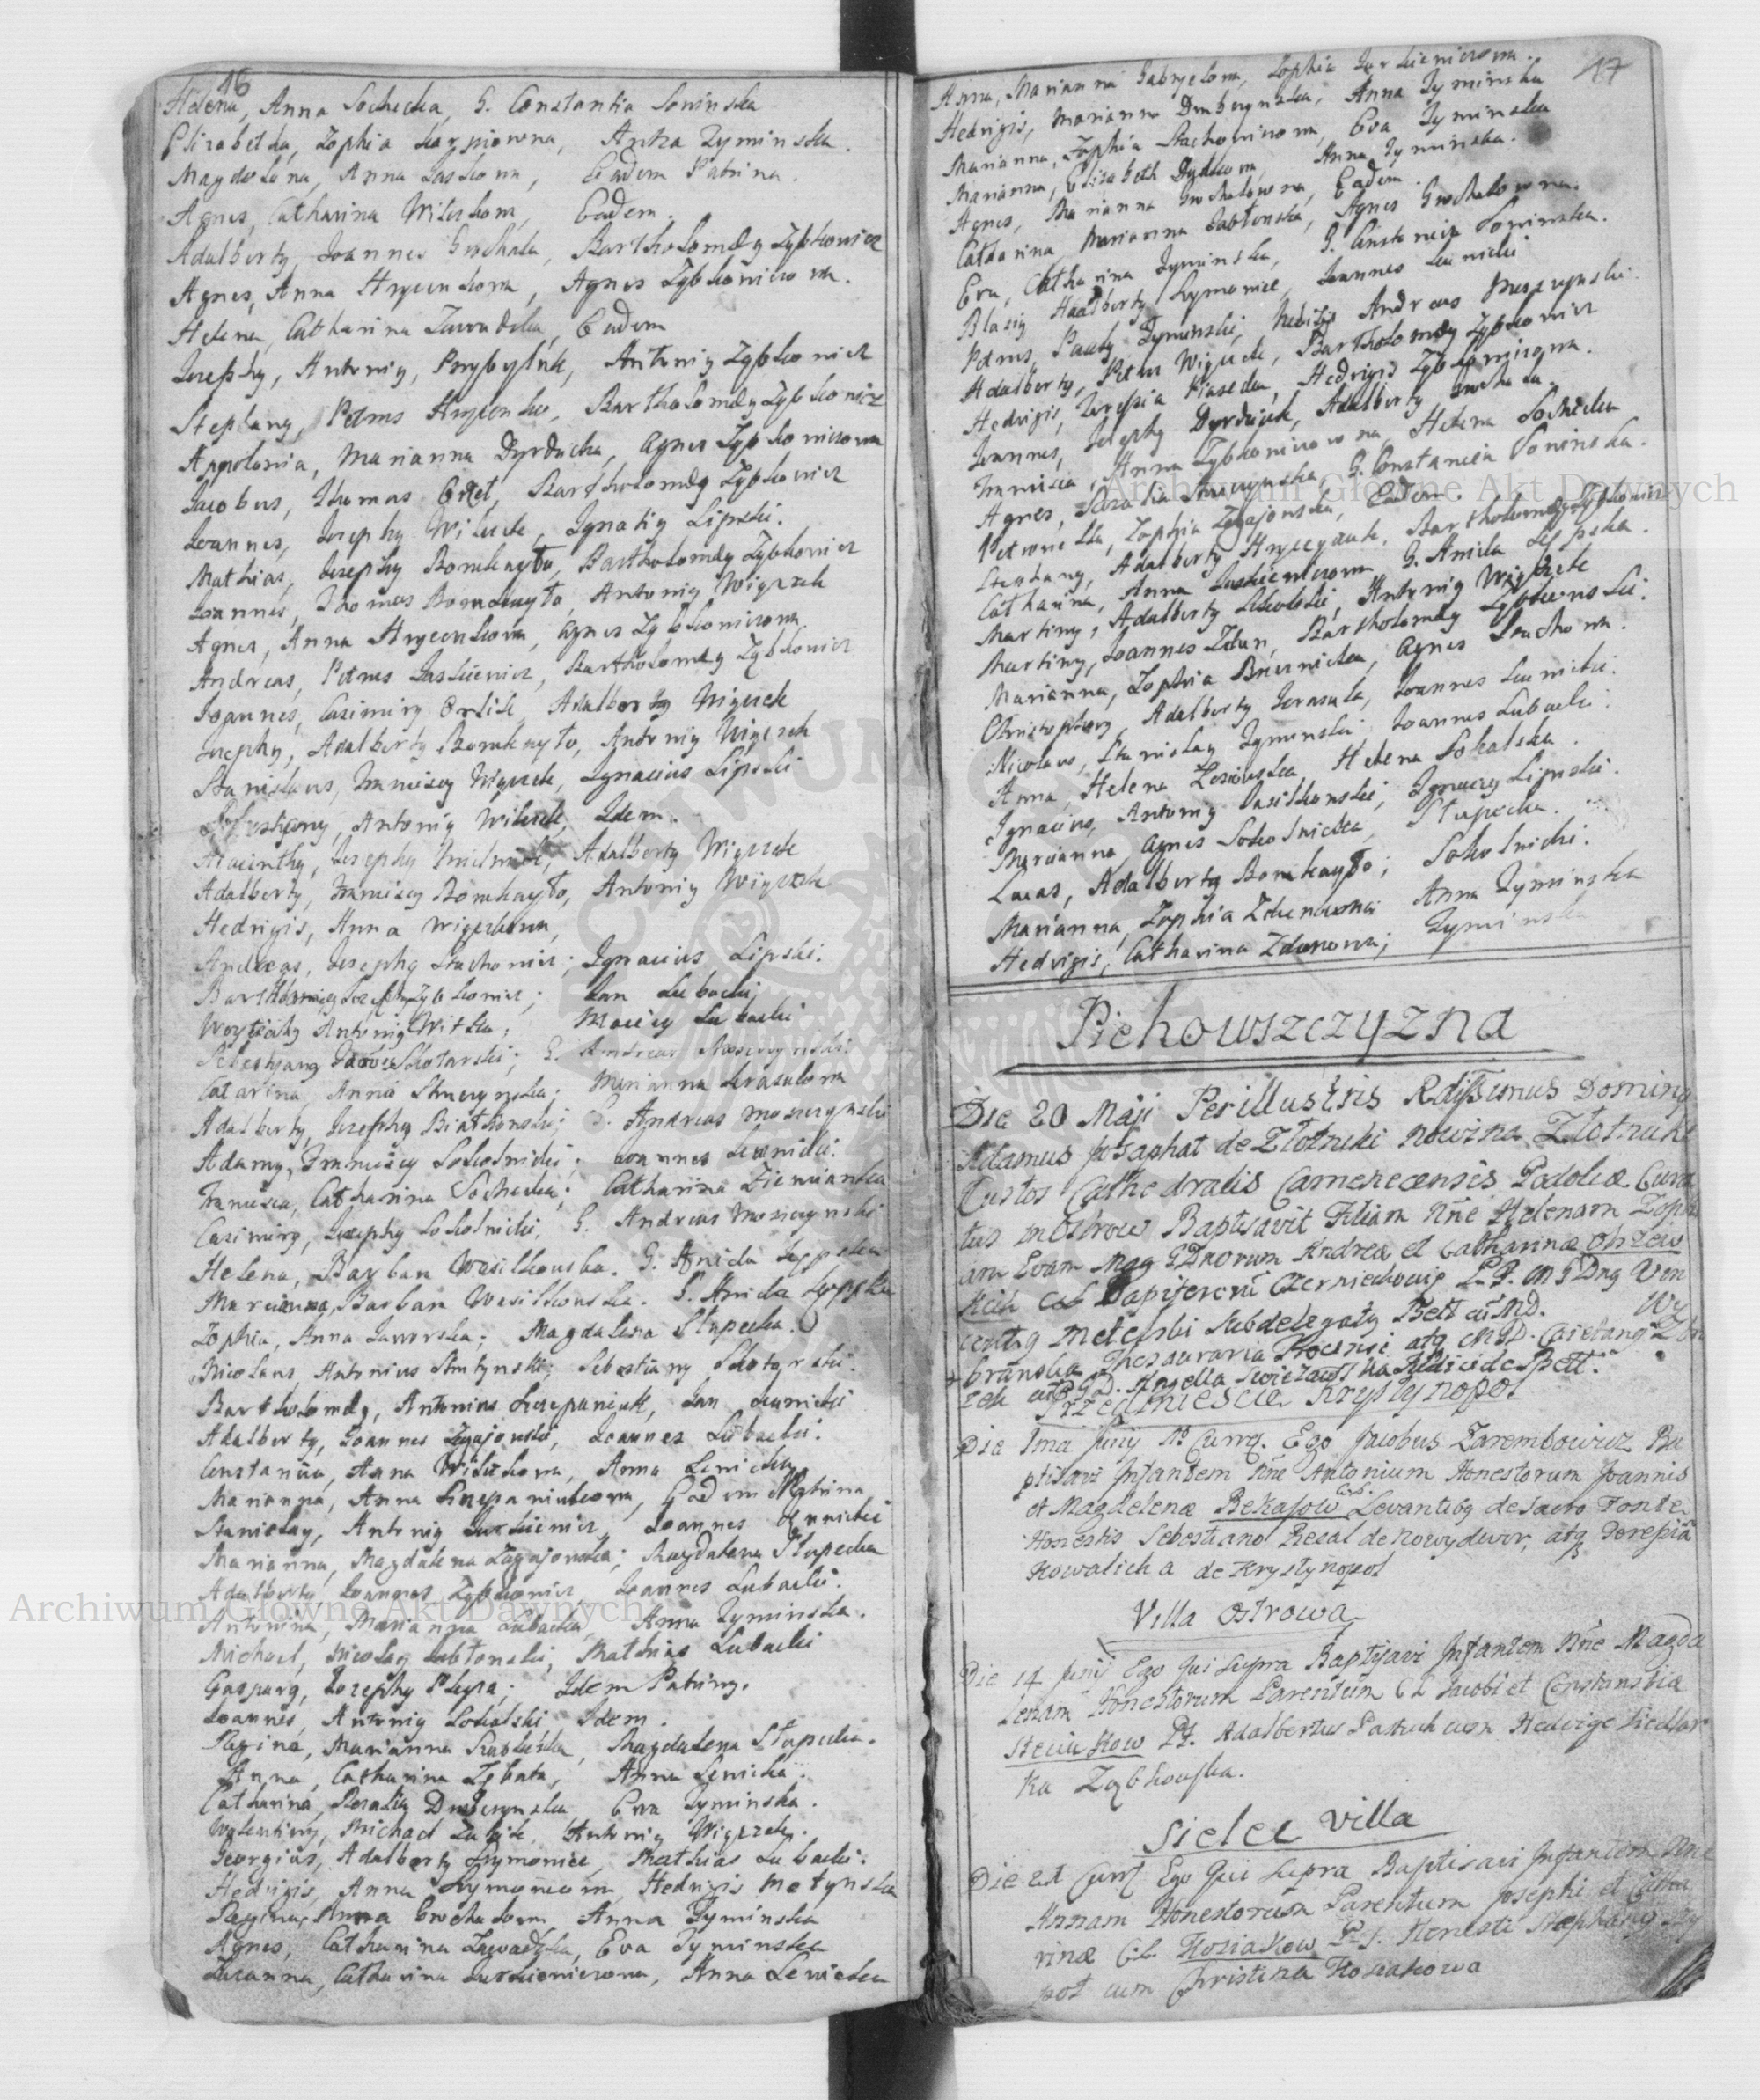 16
Helena, Anna Sochecka, G. Constantia Soninska
Elisabetha, Zophia Karpiowna, Anna Zyminska.
Magdalena, Anna Laskowa, Eadem Patrina.
Agnes, Catharina Wiluskowa, Eadem.
Adalberty, Joannes Grochala, Bartholomęy Zybkowicz
Agnes, Anna Hrycunkowa, Agnes Zybkowiczowa.
Helena, Catharina Zawadzka, Eadem
Josephy, Antoniy, Przybyluk, Antoniy Zybkowicz
Stephany, Petrus Hrycunko, Bartholomęy Zybkowicz
Appolonia, Marianna Dyrducha, Agnes Zybkowiczowa
Jacobus, Thomas Orzeł, Bartholomęy Zybkowicz
Joannes, Josephy Wiluch, Ignatiy Lipski.
Mathias, Josephy Romkayło, Bartholomęy Zybkowicz
Joannes, Thomas Romkayło, Antoniy Wiązek
Agnes, Anna Hrycunkowa, Agnes Zybkowiczowa.
Andreas, Petrus Laskiewicz, Bartholomęy Zybkowicz
Joannes, Casimiry Orlik, Adalberty Wiązek
Josephy, Adalberty Romkayło, Antoniy Wiązek
Stanislaus, Franciscy Wiązek, Ignacius Lipski.
Antoniy Wiluch, Idem.
Hiacinthy, Josephy Adalberty Wiązek
Adalberty, Franciscy Romkayło, Antoniy Wiązek
Hedvigis, Anna Wiązkowa,
Andreas, Josephy Stachowicz; Ignacius Lipski.
Zybkowicz; Jan Lubacki
Antoniy Witka; Maciey Lubacki
Sebestyany G. Andreas
Catarina, Anna Strucynska; Marianna Jerasulowa
Adalberty, Josephy Białkowski; G. Andreas Moszczynski
Adamy, Franciscy Sokolnicki; Joannes Lewnicki.
Francisca, Catharina Sochecka; Catharina Ziemianka
Casimiry, Josephy Sokolnicki, G. Andreas Moszczynski
Helena, Barbara Wasilkowska. G. Anida Lyppska
Marcianna, Barbara Wasilkowska. G. Anida Lyppska
Zophia, Anna Jaworska; Magdalena Słupecka.
Nicolaus, Antonius Strutynski; Sebestiany Skotarski.
Bartholomęy, Antonius Szczepaniuk, Jan Lewnicki
Adalberty, Joannes Zagajowski, Joannes Lubacki.
Constantia, Anna Wiluskowa, Anna Lewicka
Marianna, Anna Szczepaniukowa, Eadem Patrina
Stanislay, Antoniy Laskiewicz Joannes Lewnicki
Marianna, Magdalena Zagajowska; Magdalena Słupecka
Adalberty, Joannes Zybkowicz, Joannes Lubacki.
Antonina, Marianna Lubacka, Anna Zyminska.
Michael, Nicolay Jabłonski, Mathias Lubacki
Gaspary, Josephy Pluza; Idem Patriny.
Joannes, Antoniy Sokalski Idem.
Regina, Marianna Magdalena Słupecka.
Anna, Catharina Zębata, Anna Lewicka.
Catharina, Rosalia Dmberynska, Eva Zyminska.
Walentiny, Michael Zubik, Antoniy Wiązek.
Georgius, Adalberty Szymoniec, Mathias Lubacki.
Hedvigis, Anna Hedvigis Metynska
Regina, Anna Grochalowa, Anna Zyminska
Agnes, Catharina Zawadzka, Eva Zyminska
Zuzanna, Catharina Laskiewiczowa, Anna Lewicka
17
Anna, Marianna Gabryelowa, Zophia Laskiewiczowa.
Hedvigis, Marianna Dmberynska, Anna Zyminska
Marianna, Zophia Stachowiczowa, Eva Zyminska
Marianna, Elisabeth Dydkowa, Anna Zyminska.
Agnes, Marianna Grochalowna, Eadem.
Catharina, Marianna Jabłonska, Agnes Grochalowna.
Eva, Catharina Zyminska, G. Constancia Soninska.
Blasiy Adalberty Szymoniec, Joannes Lewnicki
Petrus, Pauly Zyminski, Andreas Moszczynski.
Adalberty, Petrus Wiązek, Bartholomęy Zybkowicz
Hedvigis, Teressia Piasecka, Hedvigis Zybkowiczowa.
Joannes, Josephy Dyrduch, Adalberty Grochala.
Francisca, Anna Zybkowiczowna, Helena Sochecka
Agnes, Rosalia Strucynska, G. Constancia Soninska.
Petronella, Zophia Zagajowska, Eadem.
Stephany, Adalberty Hryczyzuk, Bartholomęy Zybkowicz
Catharina, Anna Laskiewiczowa G. Anida Lyppska.
Martiny, Adalberty Sokolski, Antoniy Wiązek
Martiny, Joannes Zdun, Bartholomęy Zybkowski.
Marianna, Zophia Biernicka, Agnes Stachowa.
Christophory, Adalberty Jerasula, Joannes Lewnicki.
Nicolaus, Stanislay Zyminski Joannes Lubacki.
Anna, Helena Helena Sokalska.
Ignacius, Antoniy Wasilkowski, Ignacy Lipnski.
Marcianna, Agnes Sokolnicka, Słupecka.
Lucas, Adalberty Romkayło; Sokolnicki.
Marianna, Zophia Zdunowna; Anna Zyminska
Hedvigis, Catharina Zdunowa; Zyminska
Piehowszczyzna
Die 20 Maji Perillustris Rdissimus Dominy
Adamus Josaphat de Złotniki Nowina Złotnicki
Custos Cathedralis Camenecensis Podoliæ Cura
tus in Ostrow Baptisavit Filiam Nñe Helenam Zophi
am Evam Mag GDnorum Andreæ et Catharinæ
Dapiferorũ Czerniechowię L.P. M GDny Vin
centy Metelski Subdelegaty Bełł cũ MD. Wy
branska Thesauraria atq MGD. Caietany
zek cũ GD. Angella Bełł.
Przedmiescie Krystynopol
Die 1ma Junij Ao Curr. Ego Jacobus Zarembowicz Ba
ptisavi Infantem Nñe Antonium Honestorum Joannis
et Magdelenæ Bekasow C.L. Levantibq de Sacro Fonte
Honestis Sebestiano Recal de Nowydwor, atq Teressia
Kowalicha de Krystynopol
Villa Ostrowa
Die 14 Junij Ego Qui Supra Baptisavi Infantem Nñe Magda
lenam Honestorum Parentum CL Jacobi et Constantiæ
Steciukow PP. Adalbertus Patruk cum Hedvige
ka Ząbkowska.
Sielec Villa
Die 21 Curr Ego Qui Supra Baptisavi Infantem Nñe
Annam Honestorum Parentum Josephi et Catha
rinæ C.L. Kosiakow P.P. Honesti Stephany
pot cum Christina Kosiakowa
Archiwum Główne Akt Dawnych
Archiwum Główne Akt Dawnych